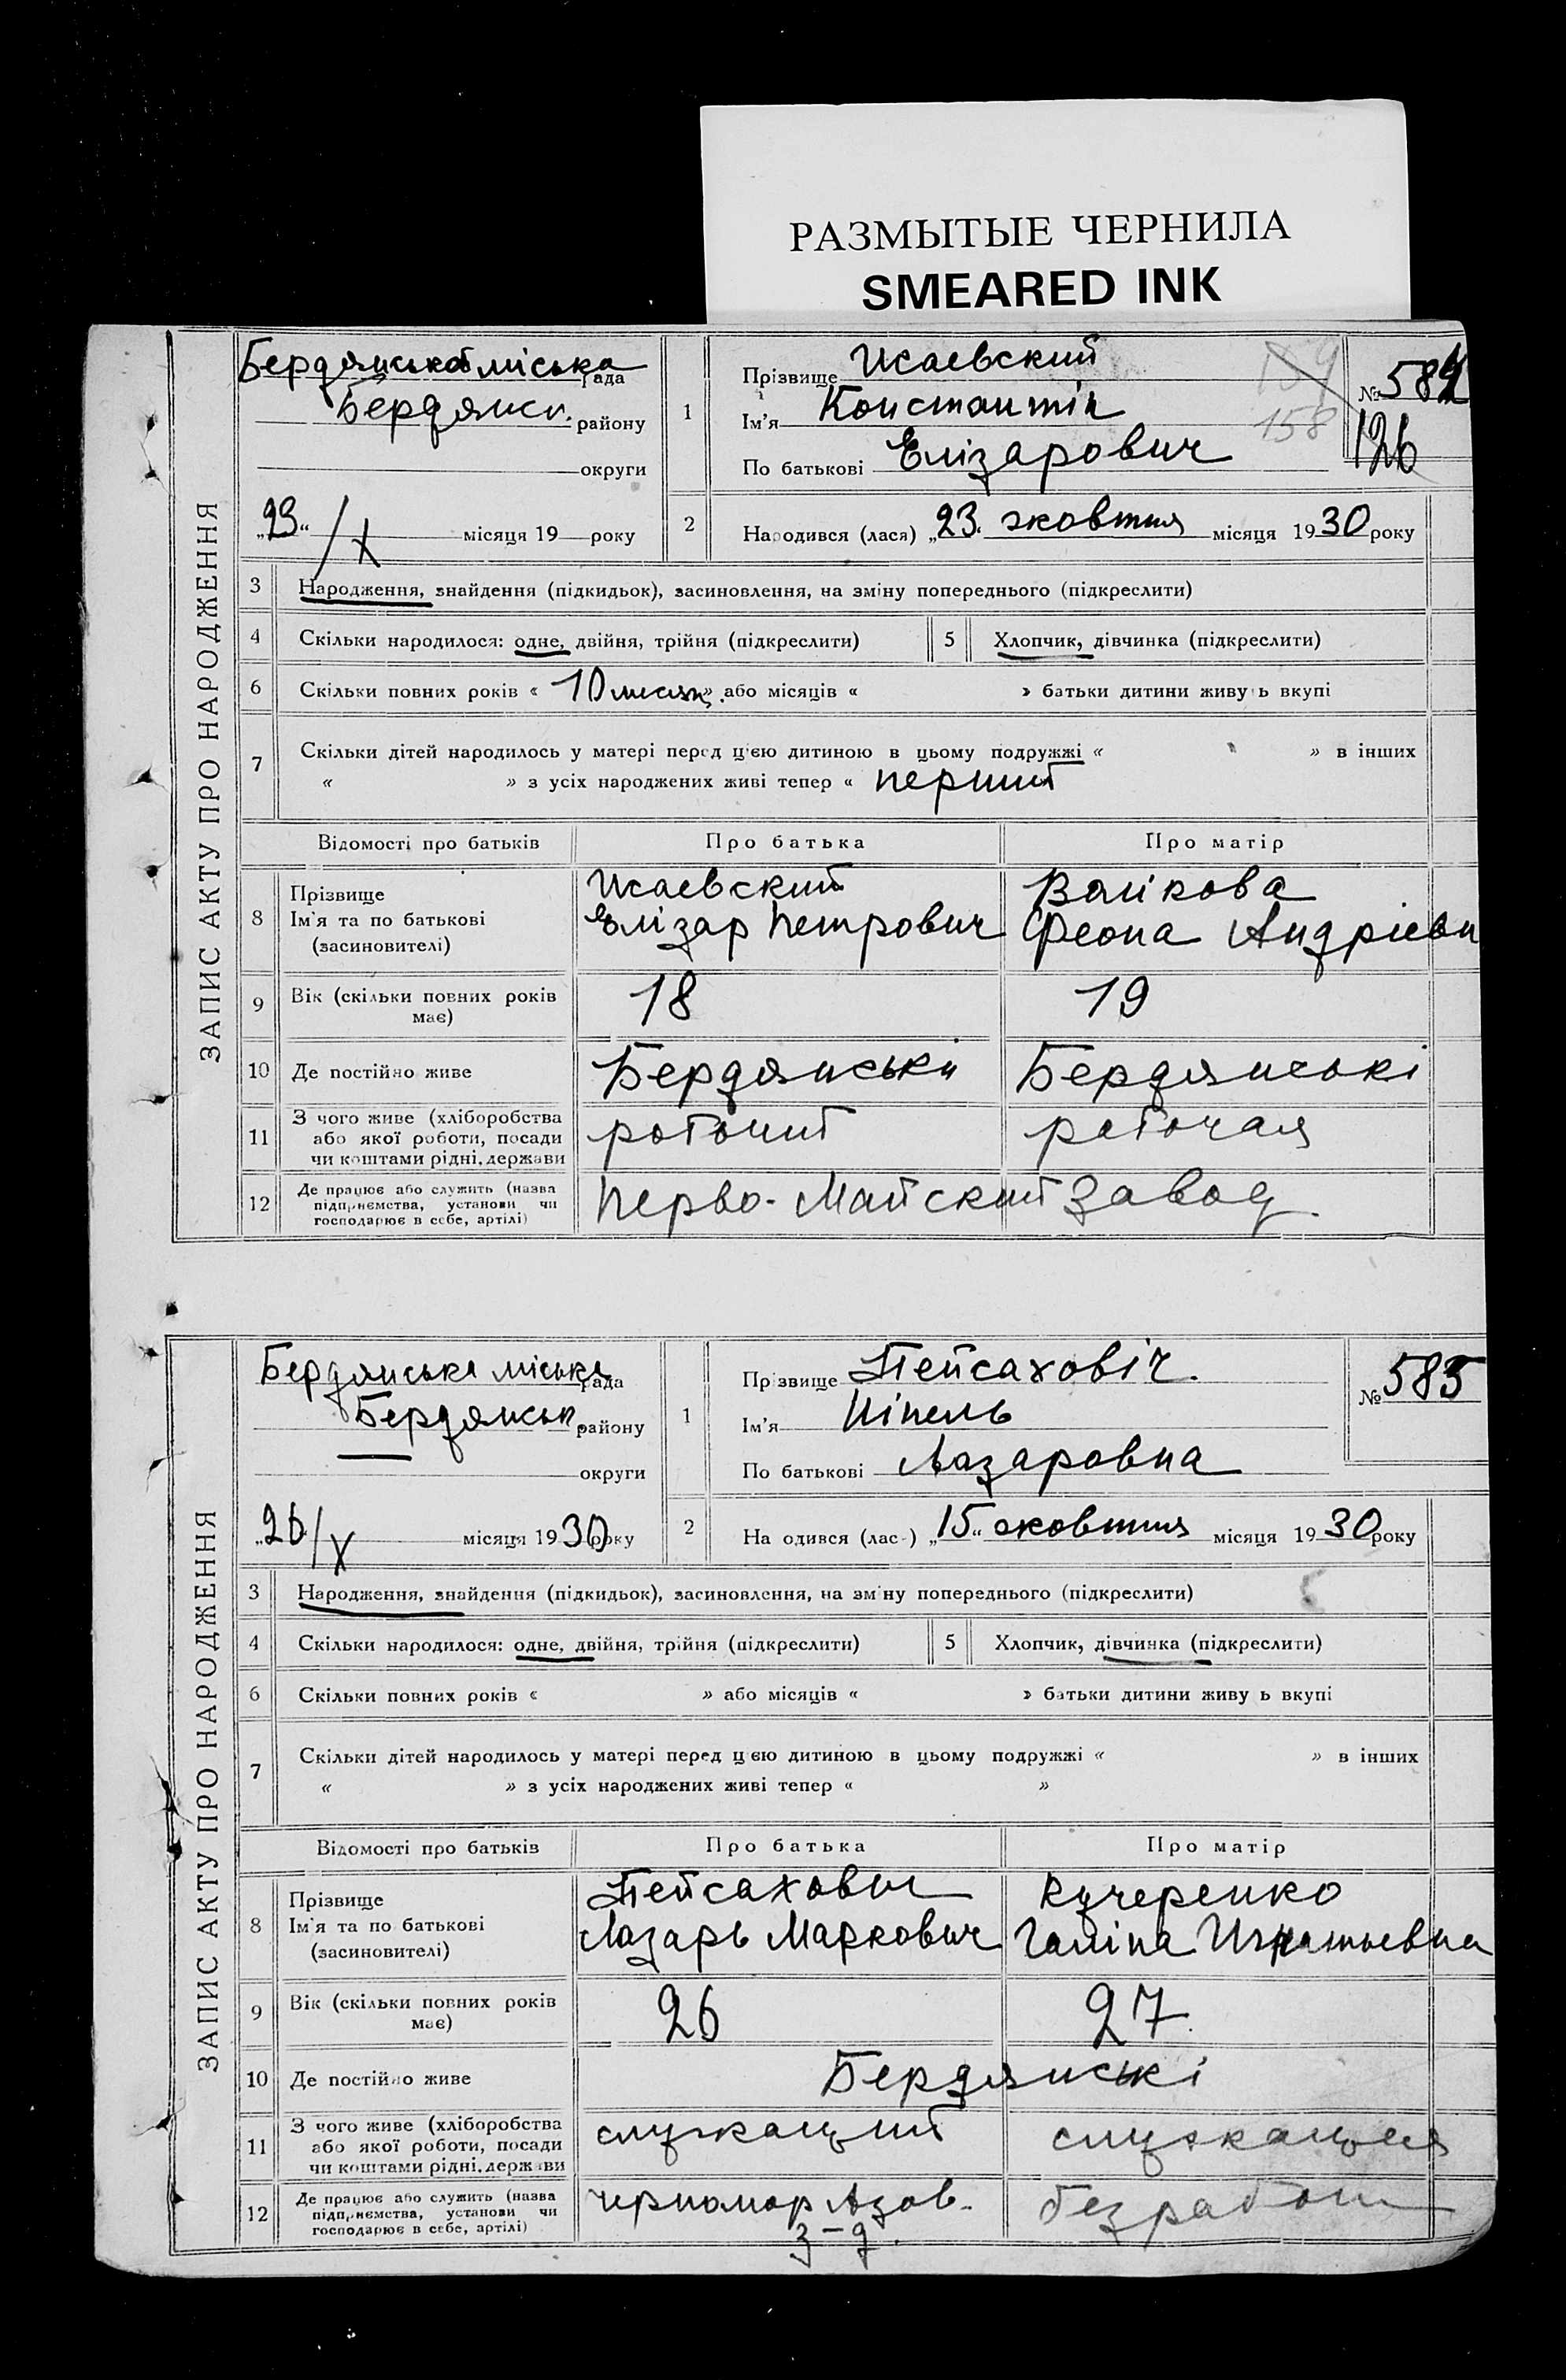 РАЗМЫТЫЕ ЧЕРНИЛА
SMEARED INK
ЗАПИС АКТУ ПРО НАРОДЖЕННЯ
Бердянська міська рада
Бердянськ. району
округи
„23“ /X місяця 19 року
1
Прізвище Исаевский
Ім'я Константін
По батькові Елізарович
159
158
№ 584
126
2
Народився (лася) „23“ жовтня місяця 1930 року
3 Народження, знайдення (підкидьок), засиновлення, на зміну попереднього (підкреслити)
4 Скільки народилося: одне, двійня, трійня (підкреслити) 5 Хлопчик, дівчинка (підкреслити)
6 Скільки повних років « 10 месяц. » або місяців « » батьки дитини живуть вкупі
7 Скільки дітей народилось у матері перед цією дитиною в цьому подружжі « » в інших
« » з усіх народжених живі тепер « перший
Відомості про батьків Про батька Про матір
8 Прізвище Ім'я та по батькові (засновителі)
Исаевский
Елізар Петрович
Феона Андрієвн
9 Вік (скільки повних років має) 18 19
10 Де постійно живе Бердянські Бердянські
11 З чого живе (хліборобства або якої роботи, посади чи коштами рідні, держави робочий рабочая
12 Де працює або служить (назва підприємства, установи чи господарює в себе, артілі) Перво-Майский завод.
ЗАПИС АКТУ ПРО НАРОДЖЕННЯ
Бердянська міська рада
Бердянськ. району
округи
„26“ /X місяця 1930 року
1
Прізвище Пейсаховіч.
Ім'я Нінель
По батькові Лазаровна
№ 585
2
Народився (лась) „15“ жовтня місяця 1930 року
3 Народження, знайдення (підкидьок), засиновлення, на зміну попереднього (підкреслити)
4 Скільки народилося: одне, двійня, трійня (підкреслити) 5 Хлопчик, дівчинка (підкреслити)
6 Скільки повних років « » або місяців « » батьки дитини живуть вкупі
7 Скільки дітей народилось у матері перед цією дитиною в цьому подружжі « » в інших
« » з усіх народжених живі тепер « »
Відомості про батьків Про батька Про матір
8 Прізвище Ім'я та по батькові (засиновителі)
Пейсахович
Лазарь Маркович
Кучеренко
Галіна Игнатьевна
9 Вік (скільки повних років має) 26 27
10 Де постійно живе Бердянські
11 З чого живе (хліборобства або якої роботи, посади чи коштами рідні, держави служащий служащая
12 Де працює або служить (назва підприємства, установи чи господарює в себе, артілі) Черномор Азов.
з-д.
без работ